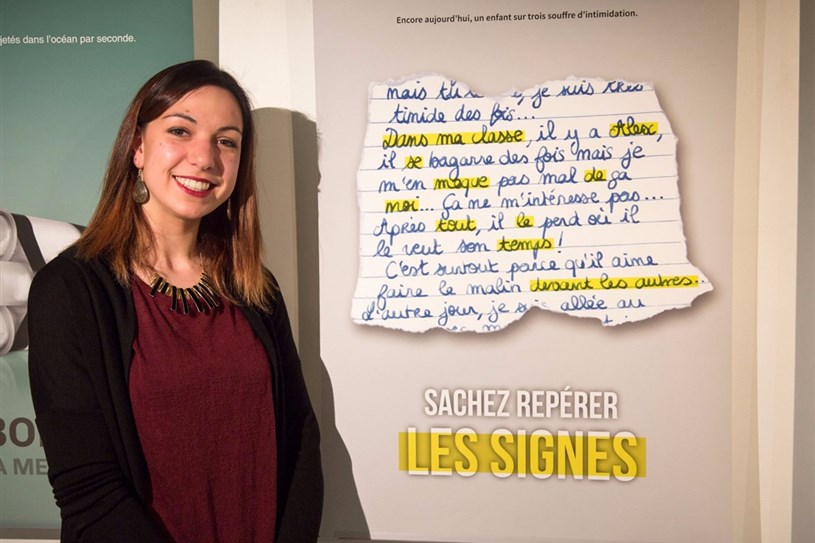 jetés dans l'océan par seconde.
BO
A ME
Encore aujourd'hui, un enfant sur trois souffre d'intimidation.
mais je suis très
timide des fois...
Dans ma classe, il y a Alex,
il se bagarre des fois mais je
m'en moque pas mal de ça
moi... Ça ne m'intéresse pas...
Après tout, il le perd où il
le veut son temps!
C'est surtout parce qu'il aime
faire le malin devant les autres...
d'autre jour, je suis allée au
SACHEZ REPÉRER
LES SIGNES